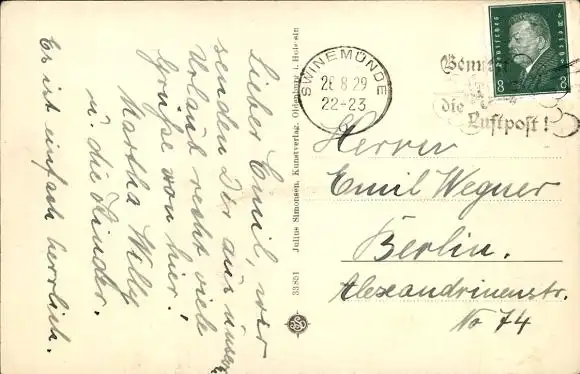 Lieber Emil, wir
senden Dir aus unserm
Urlaub recht viele
Grüße von hier.
Martha Willy
u. die Kinder.
Es ist einfach herrlich.
33851 Julius Simonsen, Kunstverlag, Oldenburg i. Holstein
SWINEMÜNDE
26 8 29
22-23
die
Luftpost!
Deutsches Reich
8 8
Herrn
Emil Wegner
Berlin.
Alexandrinenstr.
No 74